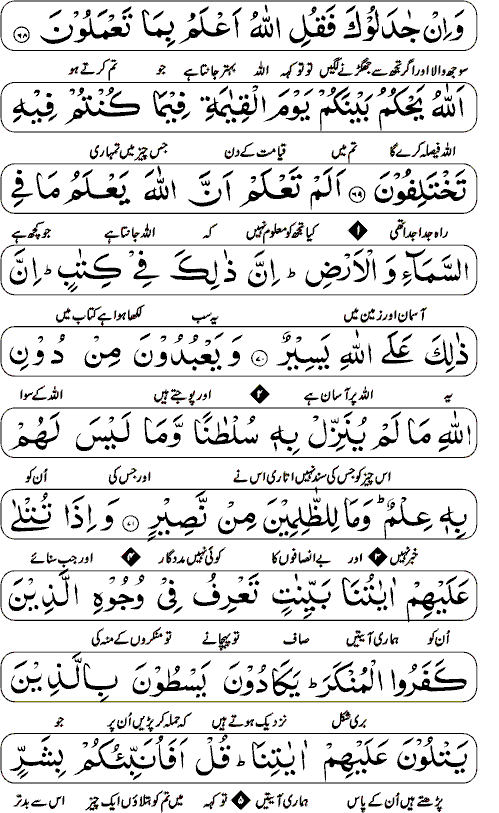 وَاِنْ جٰدَلُوْكَ فَقُلِ اللّٰهُ اَعْلَمُ بِمَا تَعْمَلُوْنَ ﴿۶۸﴾
سوجھ والا اور اگر تجھ سے جھگڑنے لگیں تو تو کہہ اللہ بہتر جانتا ہے جو تم کرتے ہو
اَللّٰهُ يَحْكُمُ بَيْنَكُمْ يَوْمَ الْقِيٰمَةِ فِيْمَا كُنْتُمْ فِيْهِ
اللہ فیصلہ کرے گا تم میں قیامت کے دن جس چیز میں تمہاری
تَخْتَلِفُوْنَ ﴿۶۹﴾ اَلَمْ تَعْلَمْ اَنَّ اللّٰهَ يَعْلَمُ مَا فِي
راہ جدا جدا تھی ۱ کیا تجھ کو معلوم نہیں کہ اللہ جانتا ہے جو کچھ ہے
السَّمَآءِ وَالْاَرْضِ ؕ اِنَّ ذٰلِكَ فِيْ كِتٰبٍ ؕ اِنَّ
آسمان اور زمین میں یہ سب لکھا ہوا ہے کتاب میں
ذٰلِكَ عَلَى اللّٰهِ يَسِيْرٌ ﴿۷۰﴾ وَيَعْبُدُوْنَ مِنْ دُوْنِ
یہ اللہ پر آسان ہے ۲ اور پوجتے ہیں اللہ کے سوا
اللّٰهِ مَا لَمْ يُنَزِّلْ بِهٖ سُلْطٰنًا وَّمَا لَيْسَ لَهُمْ
اس چیز کو جس کی سند نہیں اتاری اس نے اور جس کی اُن کو
بِهٖ عِلْمٌ ؕ وَمَا لِلظّٰلِمِيْنَ مِنْ نَّصِيْرٍ ﴿۷۱﴾ وَاِذَا تُتْلٰى
خبر نہیں ۳ اور بے انصافوں کا کوئی نہیں مددگار ۴ اور جب سنائے
عَلَيْهِمْ اٰيٰتُنَا بَيِّنٰتٍ تَعْرِفُ فِيْ وُجُوْهِ الَّذِيْنَ
اُن کو ہماری آیتیں صاف تو پہچانے تو منکروں کے منہ کی
كَفَرُوا الْمُنْكَرَ ؕ يَكَادُوْنَ يَسْطُوْنَ بِالَّذِيْنَ
بری شکل نزدیک ہوتے ہیں کہ حملہ کر پڑیں اُن پر جو
يَتْلُوْنَ عَلَيْهِمْ اٰيٰتِنَا ؕ قُلْ اَفَاُنَبِّئُكُمْ بِشَرٍّ
پڑھتے ہیں اُن کے پاس ہماری آیتیں ۵ تو کہہ میں تم کو بتلاؤں ایک چیز اس سے بدتر